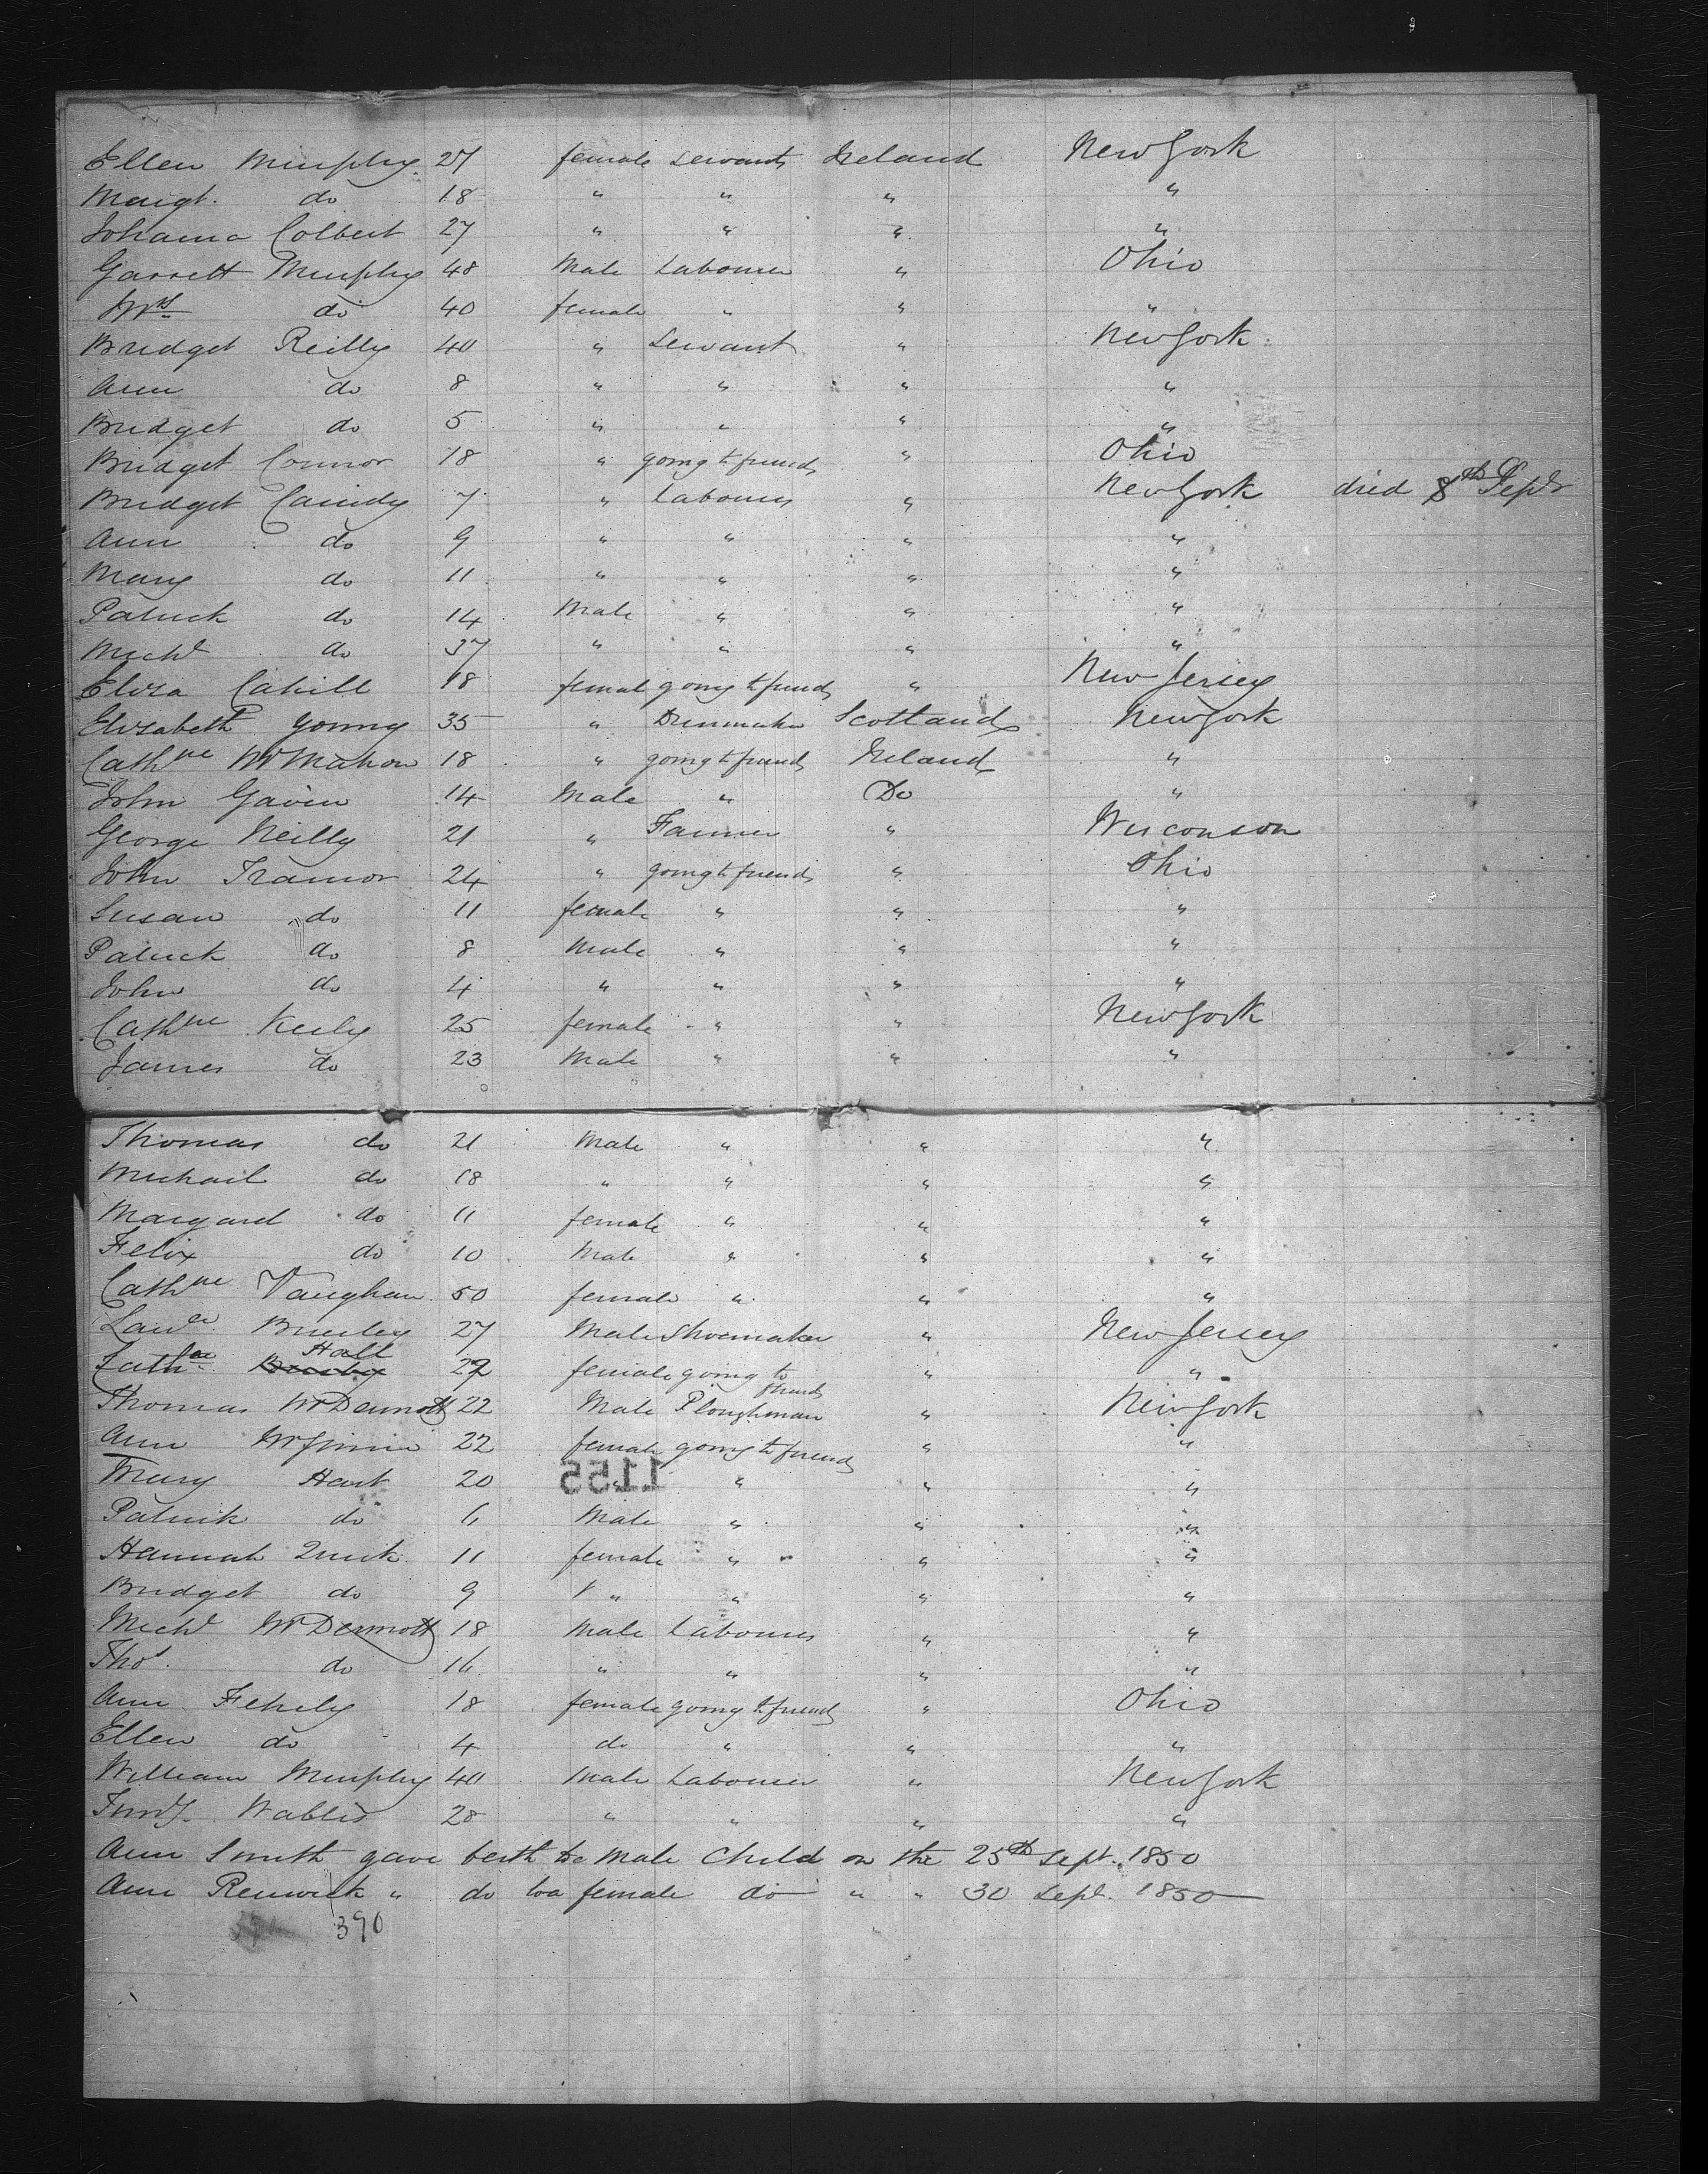 Ellen Murphy 27 female Servants Ireland New York
Margt. do 18 " " " "
Johanna Colbert 27 " " " "
Garrett Murphy 48 Male Labourer " Ohio
Mrs do 40 female " " "
Bridget Reilly 40 " Servant " New York
Ann do 8 " " " "
Bridget do 5 " " " "
Bridget Connor 18 " going to friends " Ohio
Bridget 7 " Labourer " New York died 8th Septr
Ann do 9 " " " "
Mary do 11 " " " "
Patrick do 14 Male " " "
Michl do 37 " " " "
Eliza Cahill 18 femal going to friends " New Jersey
Elizabeth Young 35 " Dressmaker Scotland New York
Cathne McMahon 18 " going to friends Ireland "
John Gavin 14 Male " Do "
George Neilly 21 " Farmer " Wisconson
John Trainor 24 " going to friends " Ohio
Susan do 11 female " " "
Patrick do 8 Male " " "
John do 4 " " " "
Cathne Keily 25 female " " New York
James do 23 Male " " "
Thomas do 21 Male " " "
Michail do 18 " " " "
Margaret do 11 female " " "
Felix do 10 Male " " "
Cathne Vaughan 50 female " " "
Lawce Brierley 27 Male Shoemaker " New Jersey
Hall
Cathne Brierley 22 female going to friends " "
Thomas McDermott 22 Male Ploughman " New York
Ann 22 female going to friends " "
Mary Hart 20 " " " "
1155
Patrick do 6 Male " " "
Hannah Quirk 11 female " " "
Bridget do 9 " " " "
Michl McDermott 18 Male Labourer " "
Thos. do 16 " " " "
Ann Fehily 18 female going to friends " Ohio
Ellen do 4 do " " "
William Murphy 40 Male Labourer " New York
28 " " " "
Ann Smith gave berth to a Male Child on the 25th Sept. 1850
Ann Renwick " do to a female do " " 30 Sept. 1850
390